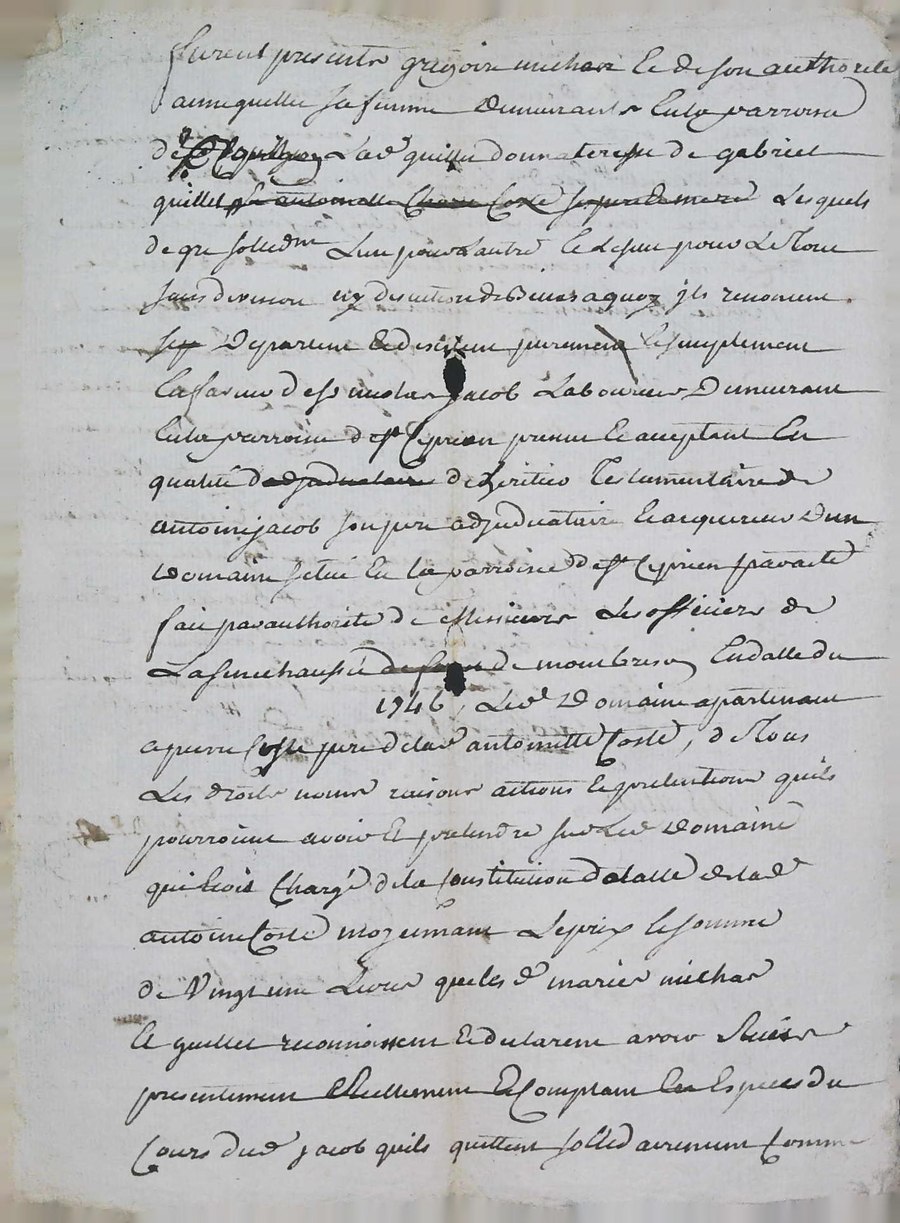 furent presents gregoire milhas Et de son authorite
anne quillet sa femme demeurants En la parroisse
de lad quillet donnateresse de gabriel
quillet Lesquels
de gre sollidm L'un pour L'autre Et Le seul pour Le Tout
sans division ny discution de Biens a quoy ils renoncent
Departent Et desistent purement Et simplement
En faveur de sr nicolas jacob Laboureur Demeurant
En la parroisse de st Cyprien present Et acceptant En
qualité d'adjudicataire de heritier Testamentaire de
antoine jacob son pere adjudicataire Et acquereur d'un
Domaine scitué En la parroisse de st Cyprien par acte
fait par authorité de Messieurs Les officiers de
La senechaussée de montbrison En datte du
1746, Led Domaine apartenant
a pierre Coste pere de lad antoinette Coste, de Tous
Les droits noms raisons actions Et pretentions qu'ils
pourroient avoir Et pretendre sur Led Domaine
qui Etoit Chargé de la Constitution dotalle de lad
antoine Coste moyennant Le prix Et somme
de Vingt une Livres que les d mariés milhas
Et quillet reconnoissent Et declarent avoir
presentement Reellement Et Comptant En Especes du
Cours dud jacob qu'ils quittent sollidairement Comme